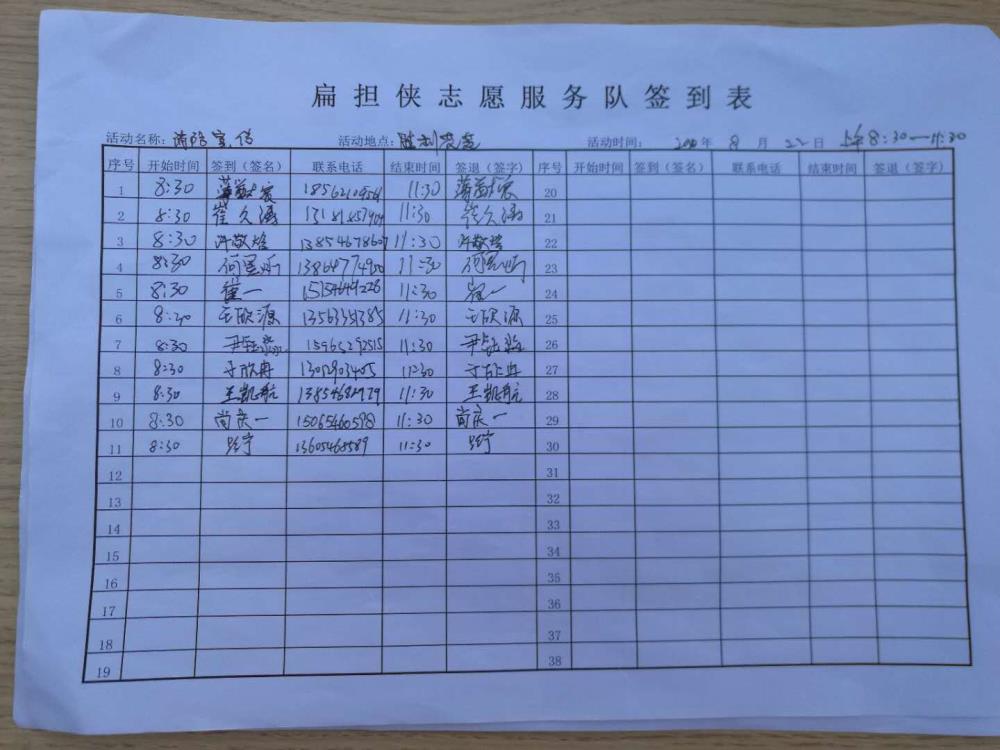 扁担侠志愿服务队签到表
活动名称：消防宣传 活动地点：胜利 活动时间： 年 8 月 22 日 上午8:30—11:30
序号 开始时间 签到（签名） 联系电话 结束时间 签退（签字） 序号 开始时间 签到（签名） 联系电话 结束时间 签退（签字）
1 8:30 11:30 20
2 8:30 崔久涵 11:30 崔久涵 21
3 8:30 许敬晗 13854678607 11:30 许敬晗 22
4 8:30 11:30 23
5 8:30 崔一 15154649226 11:30 崔一 24
6 8:30 王欣源 11:30 王欣源 25
7 8:30 15965292515 11:30 26
8 8:30 于欣冉 11:30 于欣冉 27
9 8:30 王凯航 11:30 王凯航 28
10 8:30 尚庆一 15065460598 11:30 尚庆一 29
11 8:30 11:30 30
12 31
13 32
14 33
15 34
16 35
17 36
18 37
19 38